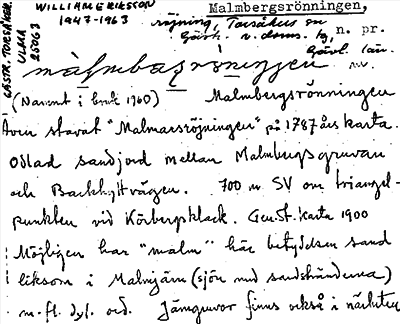 WILLIAM ERIKSSON
1947-1963
GÄSTR. TORSÅKER.
ULMA
25063
Malmbergsrönningen,
röjning, Torsåkers sn
Gästr. v. doms. hg, n. pr.
Gävl. län.
(Namnet i bruk 1960) Malmbergsrönningen
Även stavat "Malmarsröjningen" på 1787 års karta.
Odlad sandjord mellan Malmbergsgruvan
och Backhyttvägen. 700 m SV om triangel-
punkten vid Körbergsklack. Gen.St. karta 1900
Möjligen har "malm" här betydelsen sand
liksom i Malmjärn (sjön med sandstränderna)
m.fl. dyl. ord. Järngruvor finns också i närheten